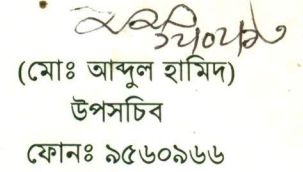 (মোঃ আব্দুল হামিদ)
উপসচিব
ফোনঃ ৯৫৬০৯৬৬